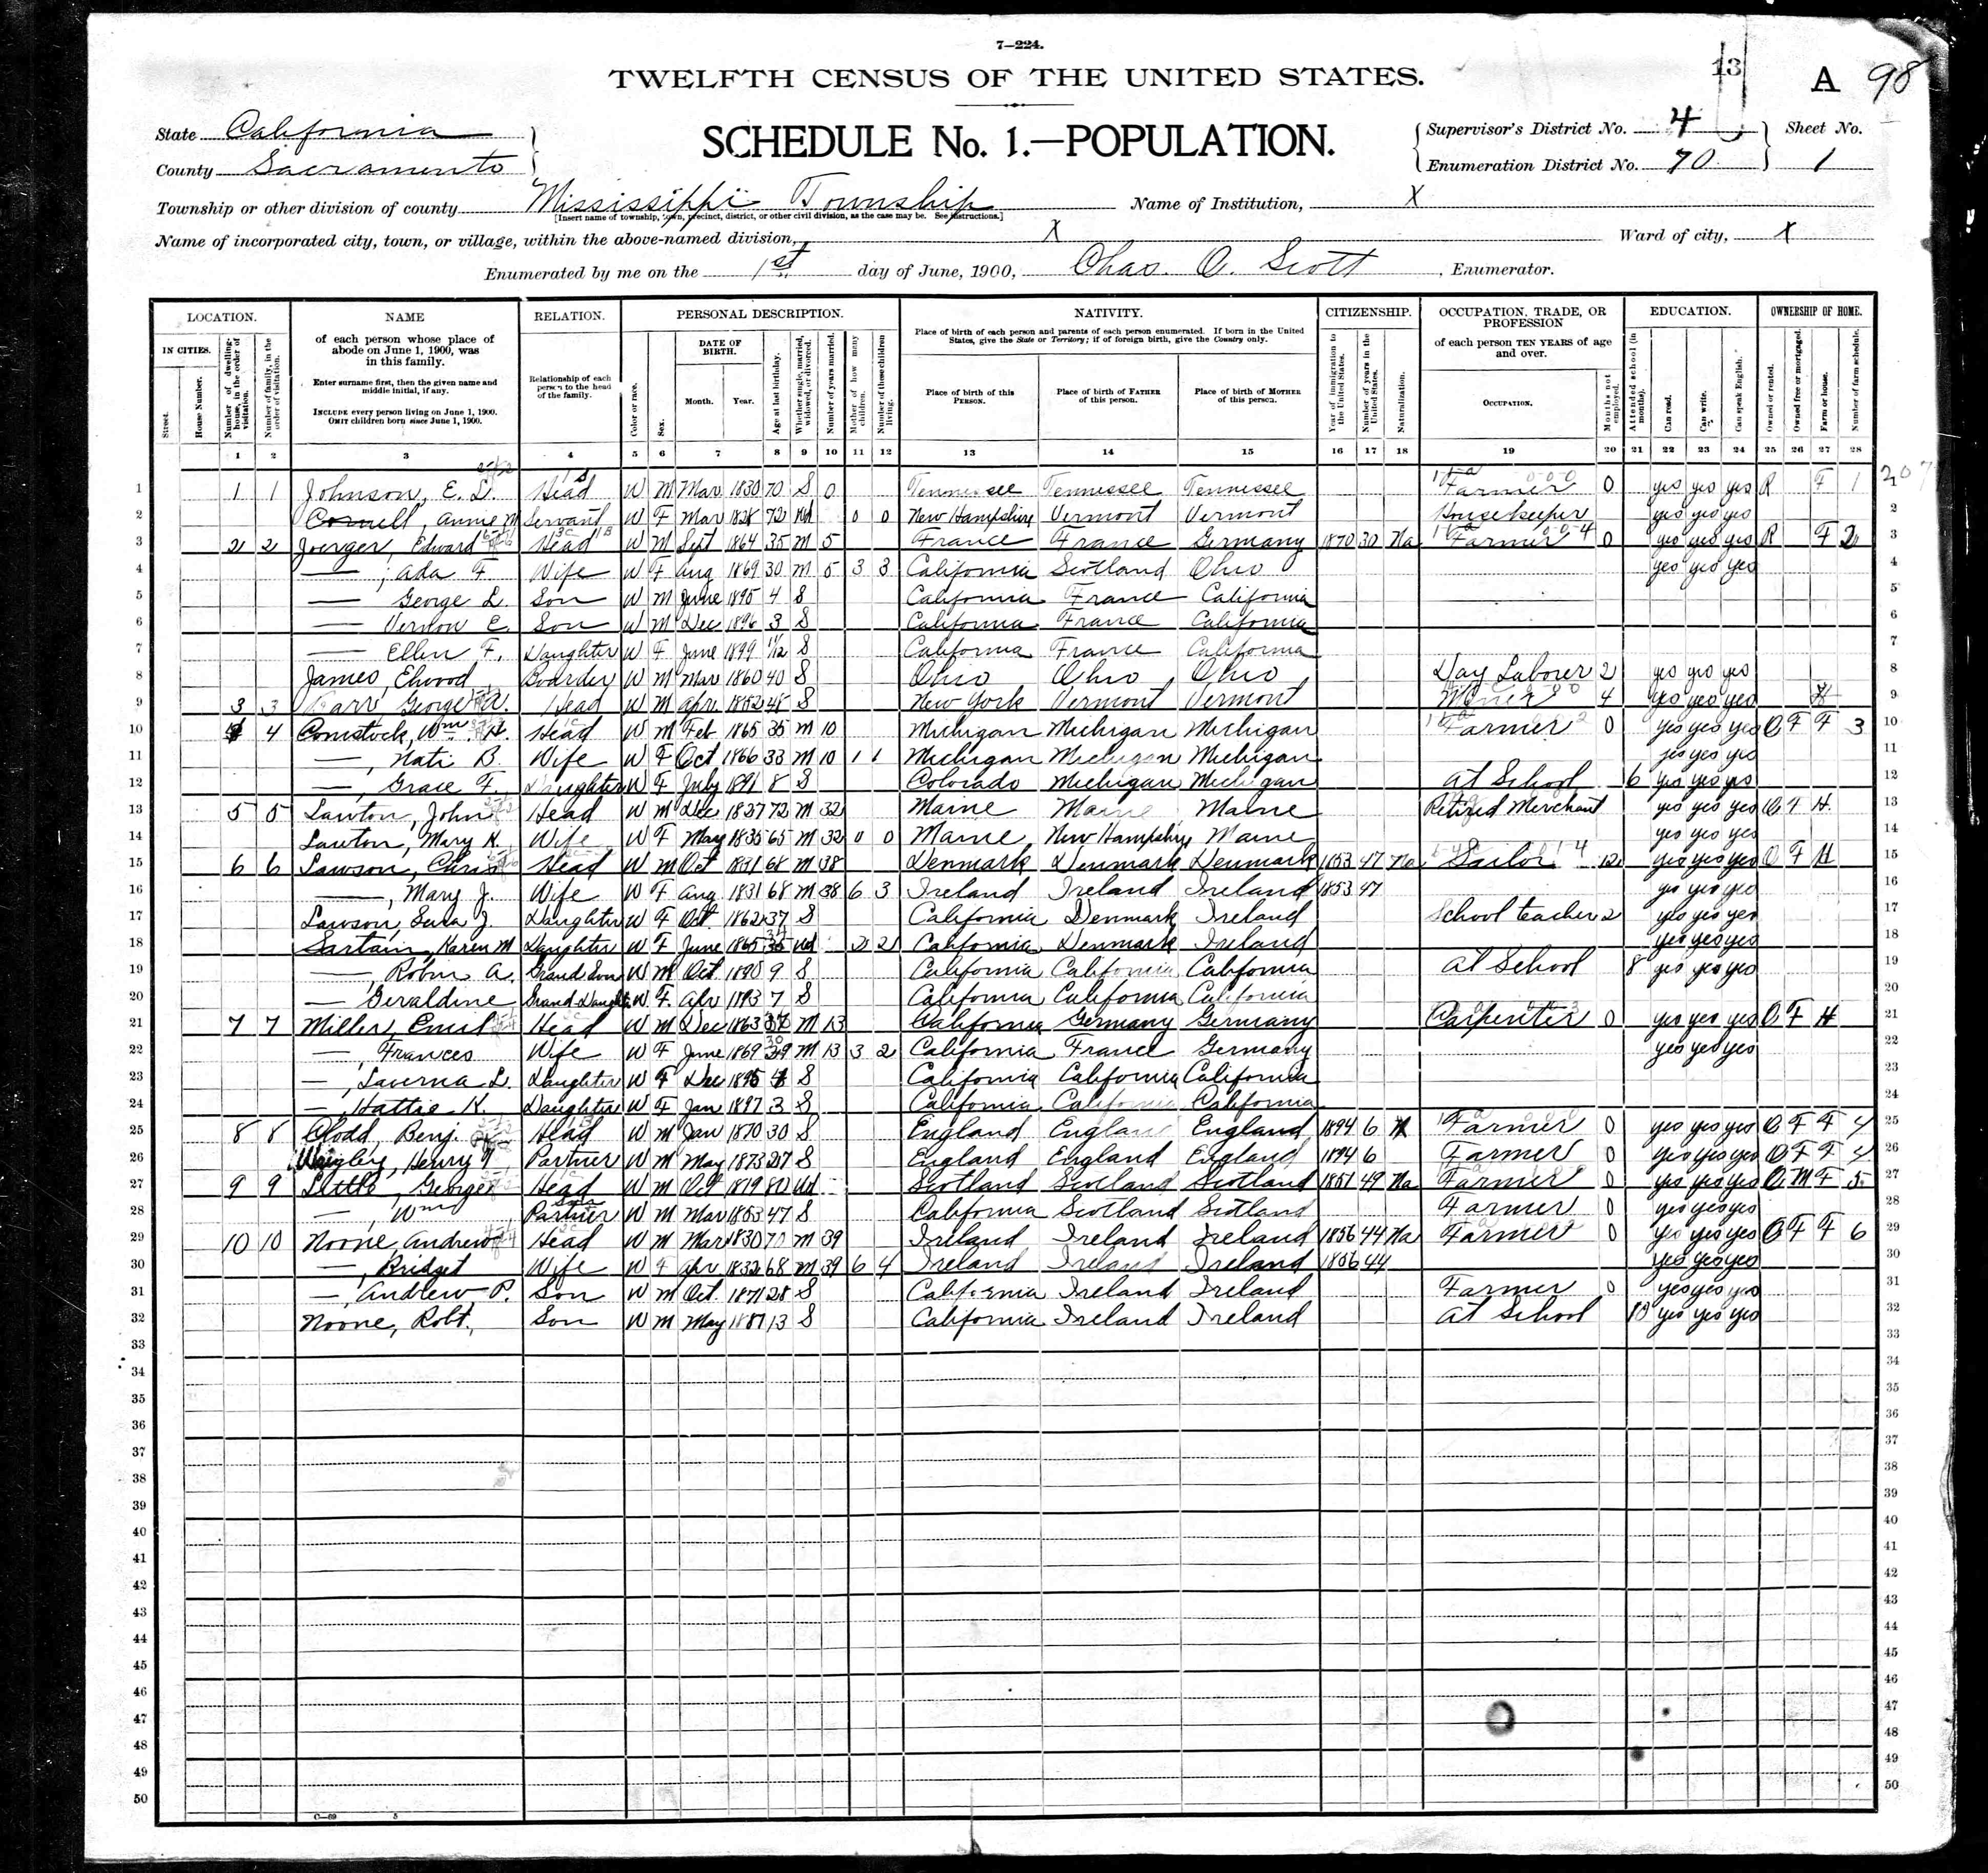 7—224.
TWELFTH CENSUS OF THE UNITED STATES.
13 A 98
State California
County Sacramento
SCHEDULE No. 1.—POPULATION.
Supervisor's District No. 4
Enumeration District No. 70
Sheet No. 1
Township or other division of county Mississippi Township Name of Institution, X
[Insert name of township, town, precinct, district, or other civil division, as the case may be. See instructions.]
Name of incorporated city, town, or village, within the above-named division, X Ward of city, X
Enumerated by me on the 1st day of June, 1900, Chas. O. Scott, Enumerator.
LOCATION. NAME RELATION. PERSONAL DESCRIPTION. NATIVITY. CITIZENSHIP. OCCUPATION, TRADE, OR PROFESSION EDUCATION. OWNERSHIP OF HOME.
IN CITIES.
Street.
House Number.
Number of dwelling-house, in the order of visitation.
Number of family, in the order of visitation.
of each person whose place of abode on June 1, 1900, was in this family.
Enter surname first, then the given name and middle initial, if any.
INCLUDE every person living on June 1, 1900.
OMIT children born since June 1, 1900.
Relationship of each person to the head of the family.
Color or race.
Sex.
DATE OF BIRTH.
Month. Year.
Age at last birthday.
Whether single, married, widowed, or divorced.
Number of years married.
Mother of how many children.
Number of these children living.
Place of birth of each person and parents of each person enumerated. If born in the United States, give the State or Territory; if of foreign birth, give the Country only.
Place of birth of this PERSON.
Place of birth of FATHER of this person.
Place of birth of MOTHER of this person.
Year of immigration to the United States.
Number of years in the United States.
Naturalization.
of each person TEN YEARS of age and over.
OCCUPATION.
Months not employed.
Attended school (in months).
Can read.
Can write.
Can speak English.
Owned or rented.
Owned free or mortgaged.
Farm or house.
Number of farm schedule.
1 2 3 4 5 6 7 8 9 10 11 12 13 14 15 16 17 18 19 20 21 22 23 24 25 26 27 28
1 1 1 Johnson, E. D. Head W M Mar 1830 70 S 0 Tennessee Tennessee Tennessee Farmer 0 yes yes yes R F 1 1
2 Cornell, Annie M Servant W F Mar 1828 72 Wd 0 0 New Hampshire Vermont Vermont Housekeeper yes yes yes 2
3 2 2 Joerger, Edward Head W M Sept 1864 35 M 5 France France Germany 1870 30 Na Farmer 0 yes yes yes R F 2 3
4 —, Ada F Wife W F Aug 1869 30 M 5 3 3 California Scotland Ohio yes yes yes 4
5 — George L. Son W M June 1895 4 S California France California 5
6 — Vernon E. Son W M Dec 1896 3 S California France California 6
7 — Ellen F. Daughter W F June 1899 11/12 S California France California 7
8 James, Elwood Boarder W M Mar 1860 40 S Ohio Ohio Ohio Day Laborer 2 yes yes yes 8
9 3 3 George A. Head W M Apr 1852 48 S New York Vermont Vermont Miner 4 yes yes yes H 9
10 4 4 Comstock, Wm H. Head W M Feb 1865 35 M 10 Michigan Michigan Michigan Farmer 0 yes yes yes O F F 3 10
11 —, Nati B. Wife W F Oct 1866 33 M 10 1 1 Michigan Michigan Michigan yes yes yes 11
12 —, Grace F. Daughter W F July 1891 8 S Colorado Michigan Michigan At School 6 yes yes yes 12
13 5 5 Lawton, John Head W M Dec 1827 72 M 32 Maine Maine Maine Retired Merchant yes yes yes O F H. 13
14 Lawton, Mary K. Wife W F May 1835 65 M 32 0 0 Maine New Hampshire Maine yes yes yes 14
15 6 6 Lawson, Chris Head W M Oct 1831 68 M 38 Denmark Denmark Denmark 1853 47 Na Sailor 12 yes yes yes O F H 15
16 —, Mary J. Wife W F Aug 1831 68 M 38 6 3 Ireland Ireland Ireland 1853 47 yes yes yes 16
17 Lawson, J. Daughter W F Oct. 1862 37 S California Denmark Ireland School teacher 2 yes yes yes 17
18 Sartain, Karen M Daughter W F June 1865 34 Wd 2 2 California Denmark Ireland yes yes yes 18
19 —, Robin A. Grand Son W M Oct. 1890 9 S California California California At School 8 yes yes yes 19
20 — Geraldine Grand Daughter W F. Apr 1893 7 S California California California 20
21 7 7 Miller, Emil Head W M Dec 1863 M 13 California Germany Germany Carpenter 0 yes yes yes O F H 21
22 —, Frances Wife W F June 1869 30 M 13 3 2 California France Germany yes yes yes 22
23 —, Laverna L. Daughter W F Dec 1895 4 S California California California 23
24 —, Hattie K. Daughter W F Jan 1897 3 S California California California 24
25 8 8 Clodd, Benj. Head W M Jan 1870 30 S England England England 1894 6 Farmer 0 yes yes yes O F F 4 25
26 Wrigley, Henry Partner W M May 1873 27 S England England England 1894 6 Farmer 0 yes yes yes O F F 4 26
27 9 9 Little, George Head W M Oct 1819 80 Wd Scotland Scotland Scotland 1851 49 Na Farmer 0 yes yes yes O M F 5 27
28 —, Wm Son Partner W M Mar 1853 47 S California Scotland Scotland Farmer 0 yes yes yes 28
29 10 10 Noone, Andrew Head W M Mar 1830 70 M 39 Ireland Ireland Ireland 1856 44 Na Farmer 0 yes yes yes O F F 6 29
30 —, Bridget Wife W F Apr 1832 68 M 39 6 4 Ireland Ireland Ireland 1856 44 yes yes yes 30
31 —, Andrew P. Son W M Oct. 1871 28 S California Ireland Ireland Farmer 0 yes yes yes 31
32 Noone, Robt., Son W M May 1887 13 S California Ireland Ireland At School 10 yes yes yes 32
33 33
34 34
35 35
36 36
37 37
38 38
39 39
40 40
41 41
42 42
43 43
44 44
45 45
46 46
47 47
48 48
49 49
50 50
C—69 5